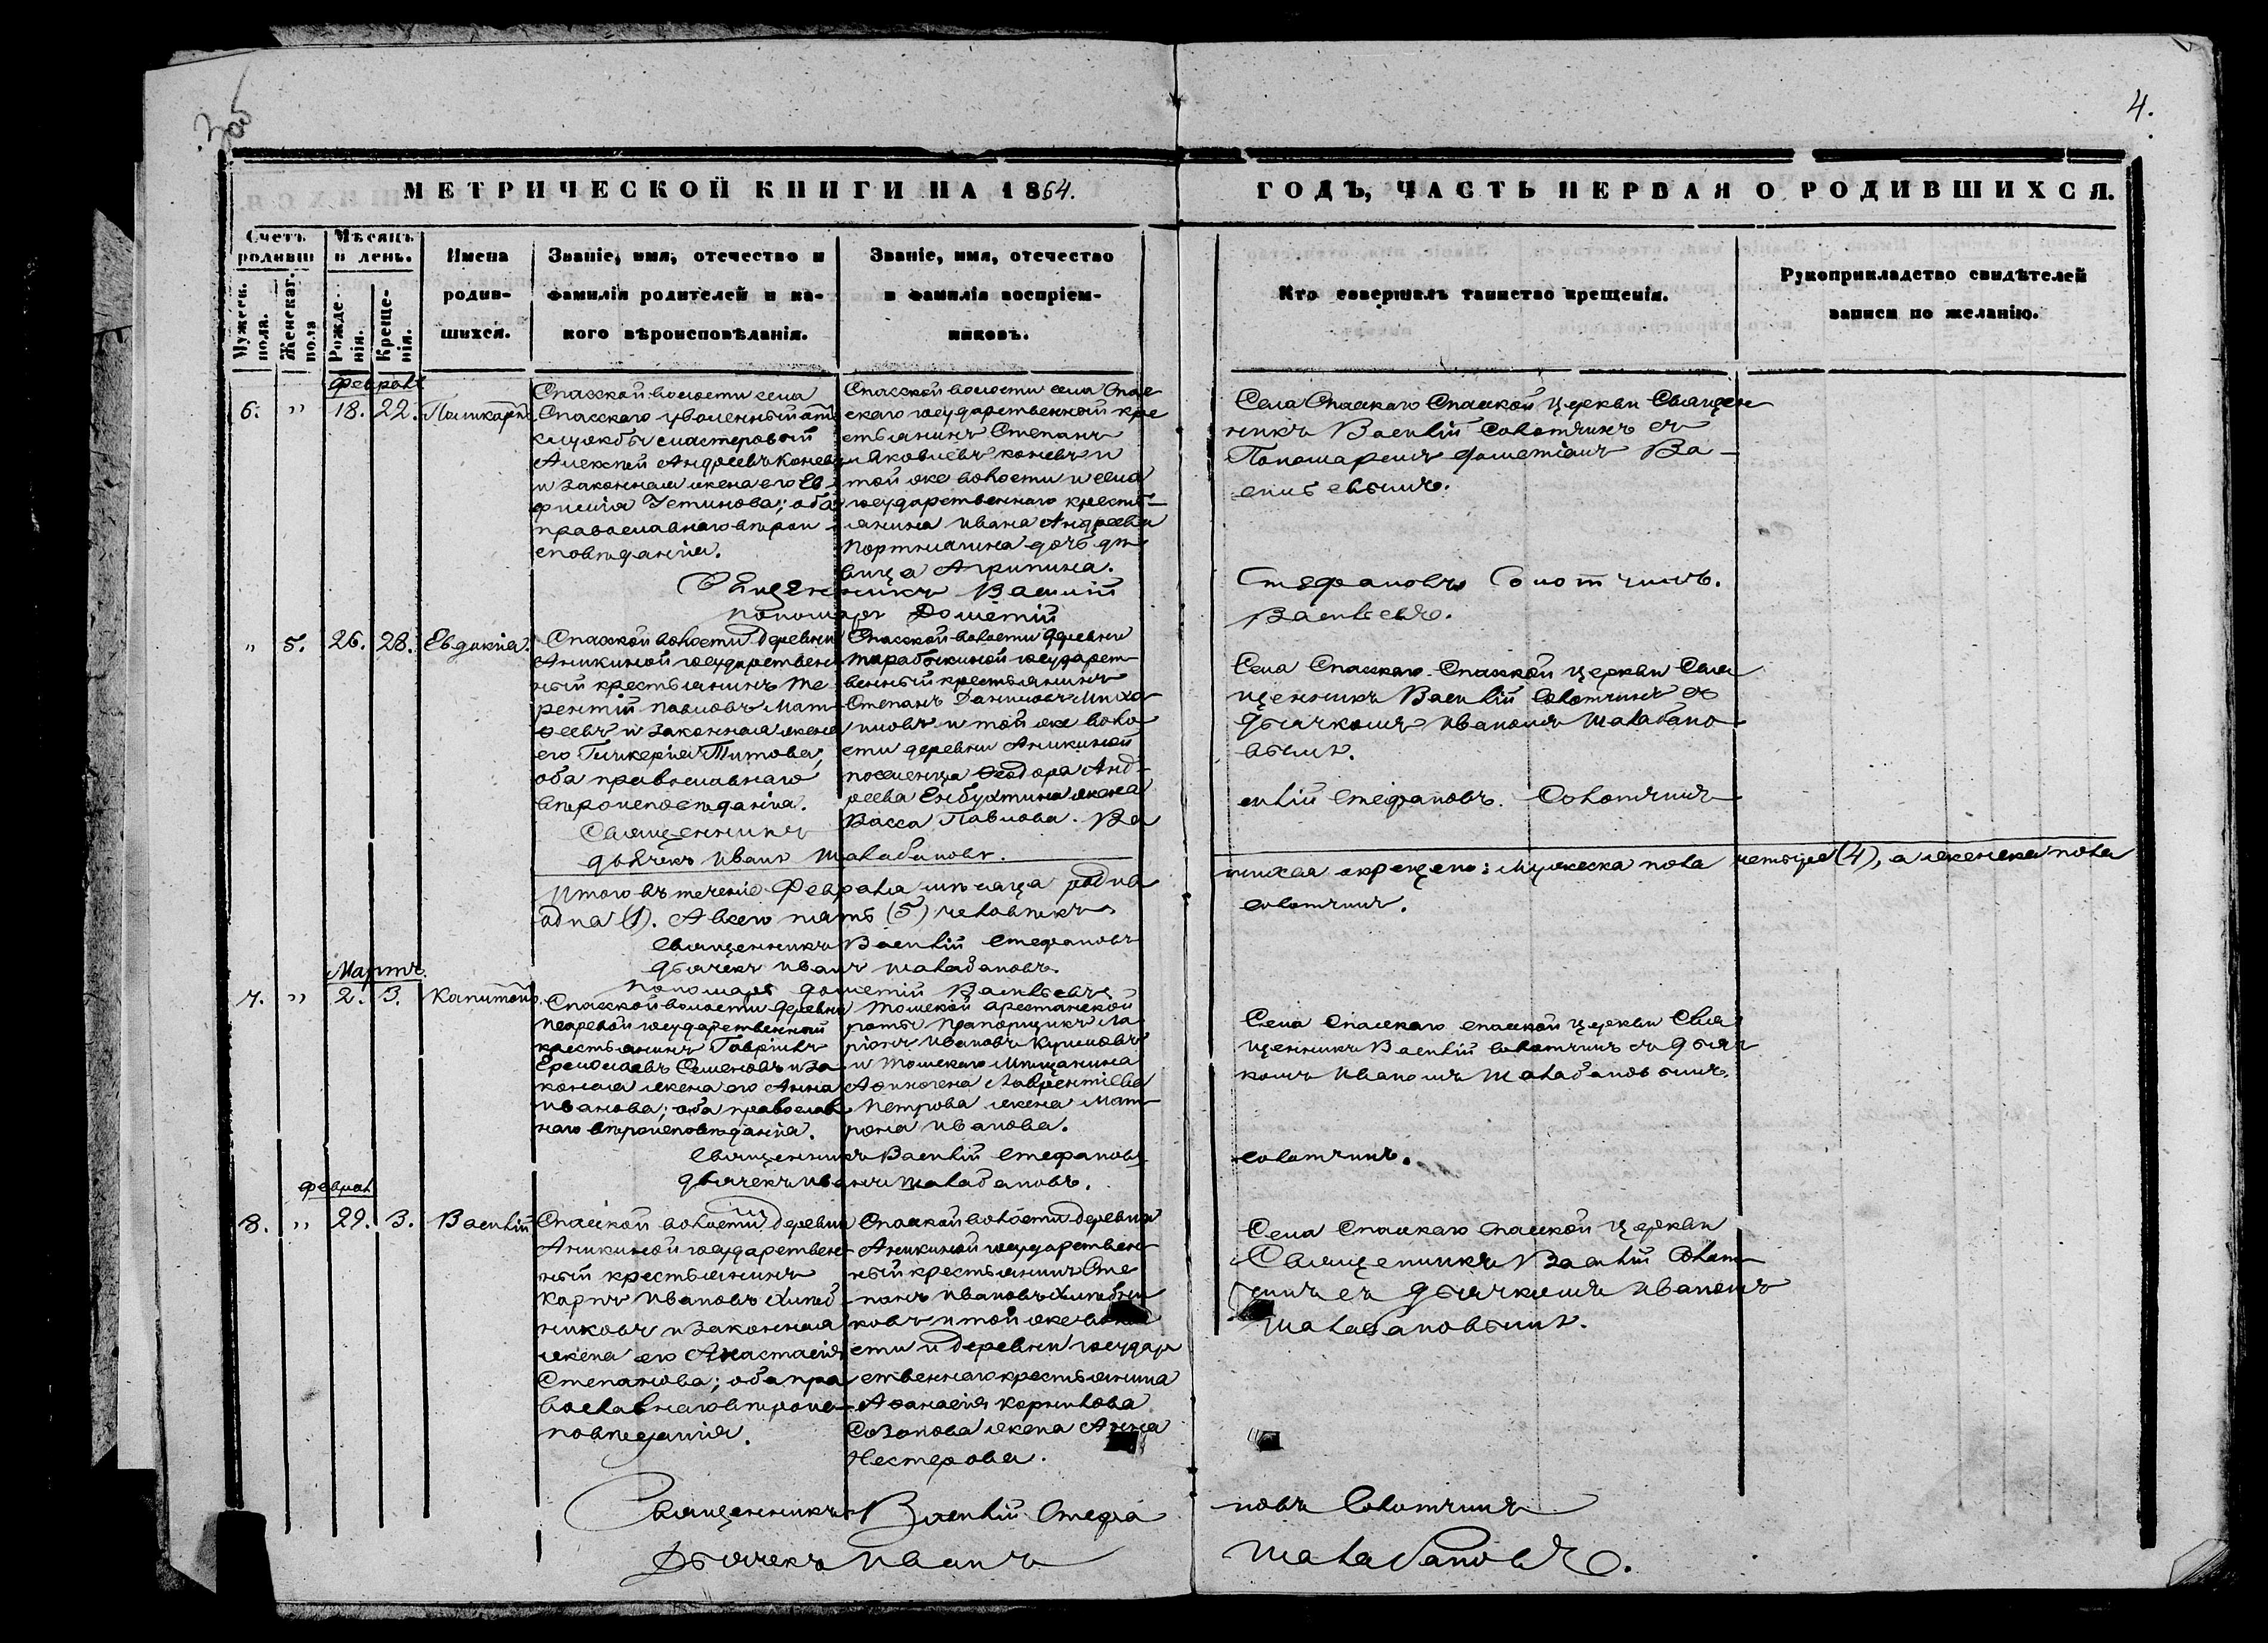 4.
МЕТРИЧЕСКОЙ КНИГИ НА 1864.
ГОДЪ, ЧАСТЬ ПЕРВАЯ О РОДИВШИХСЯ.
Счетъ родивш
Мужеск. пола.
Женскаг. пола
Мѣсяцъ и день.
Рожденія.
Крещенія.
Имена родившихся.
Званіе, имя, отечество и фамилія родителей и какого вѣроисповѣданія.
Званіе, имя, отечество и фамилія воспріемниковъ.
Кто совершалъ таинство крещенія.
Рукоприкладство свидѣтелей записи по желанію.
Февраль
6. „ 18. 22. Поликарпъ
Спасской волости села
Спасскаго уволенный отъ
службы мастеровой
Алексѣй Андреевъ Коневъ
и законная жена его Ев-
фимія Устинова; оба
православнаго вѣрои-
сповѣданія.
Спасской волости села Спас-
скаго государственный кре
стьянинъ Степанъ
Яковлевъ Коневъ и
той же волости и села
государственнаго кресть-
янина Ивана Андреева
Портнягина дочь дѣ-
вица Агрипина.
Села Спаскаго Спаской церкви Священ
никъ Василій Солотчинъ съ
Пономаремъ Дометіамъ Ва-
сильевымъ.
Священникъ Василій
Стефановъ Солотчинъ.
Пономарь Дометій
Васильевъ.
„ 5. 26. 28. Евдокія.
Спаской волости деревни
Аникиной государствен-
ный крестьянинъ Те-
рентій Павловъ Мат-
ѳеевъ и законная жена
его Гликерія Титова;
оба православнаго
вѣроисповѣданія.
Спасской волости деревни
Тарабыкиной государст-
венный крестьянинъ
Степанъ Даниловъ Миха
иловъ и той же воло
сти деревни Аникиной
поселенца Ѳеодора Анд-
реева Енбухтина жена
Васса Павлова.
Села Спаскаго Спаской церкви Свя
щенникъ Василій Солотчинъ съ
дьячкомъ Иваномъ Шалабано-
вымъ.
Священникъ Ва
силій Стефановъ Солотчинъ
дьячекъ Иванъ Шалабановъ.
Итого въ теченіе Февраля мѣсяца родив
шихся и крещено: мужеска пола четыре (4), а женска пола
одна (1). А всего пять (5) человѣкъ.
Священникъ Василій Стефановъ
Солотчинъ.
дьячекъ Иванъ Шалабановъ.
пономарь Дометій Васильевъ
Мартъ.
7. „ 2. 3. Капитонъ.
Спасской волости деревни
государственный
крестьянинъ Гавріилъ
Ермолаевъ Семеновъ и за
конная жена его Анна
Иванова; оба православ
наго вѣроисповѣданія.
Томской арестанской
роты Прапорщикъ Ла
ріонъ Ивановъ
и Томскаго Мѣщанина
Аѳиногена Лаврентіева
Петрова жена Мат-
рона Иванова.
Села Спаскаго Спаской церкви Свя
щенникъ Василій Солотчинъ съ дьяч
комъ Иваномъ Шалабановымъ.
Священникъ Василій Стефановъ
Солотчинъ.
дьячекъ Иванъ Шалабановъ.
Феврал
8. „ 29. 3. Василій
Спаской волости деревни
Аникиной государствен-
ный крестьянинъ
Карпъ Ивановъ Хлѣб
никовъ и законная
жена его Анастасія
Степанова; оба пра
вославнаго вѣроис-
повѣданія.
Спаской волости деревни
Аникиной государствен-
ный крестьянинъ Сте
панъ Ивановъ Хлѣбни
ковъ и той же воло
сти и деревни государ
ственнаго крестьянина
Аѳанасія Корнилова
Созонова жена Анна
Нестерова.
Села Спаскаго Спаской церкви
Священникъ Василій Солот-
чинъ съ дьячкомъ Иваномъ
Шалабановымъ.
Священникъ Василій Стефа
новъ Солотчинъ
Дьячекъ Иванъ
Шалабановъ.